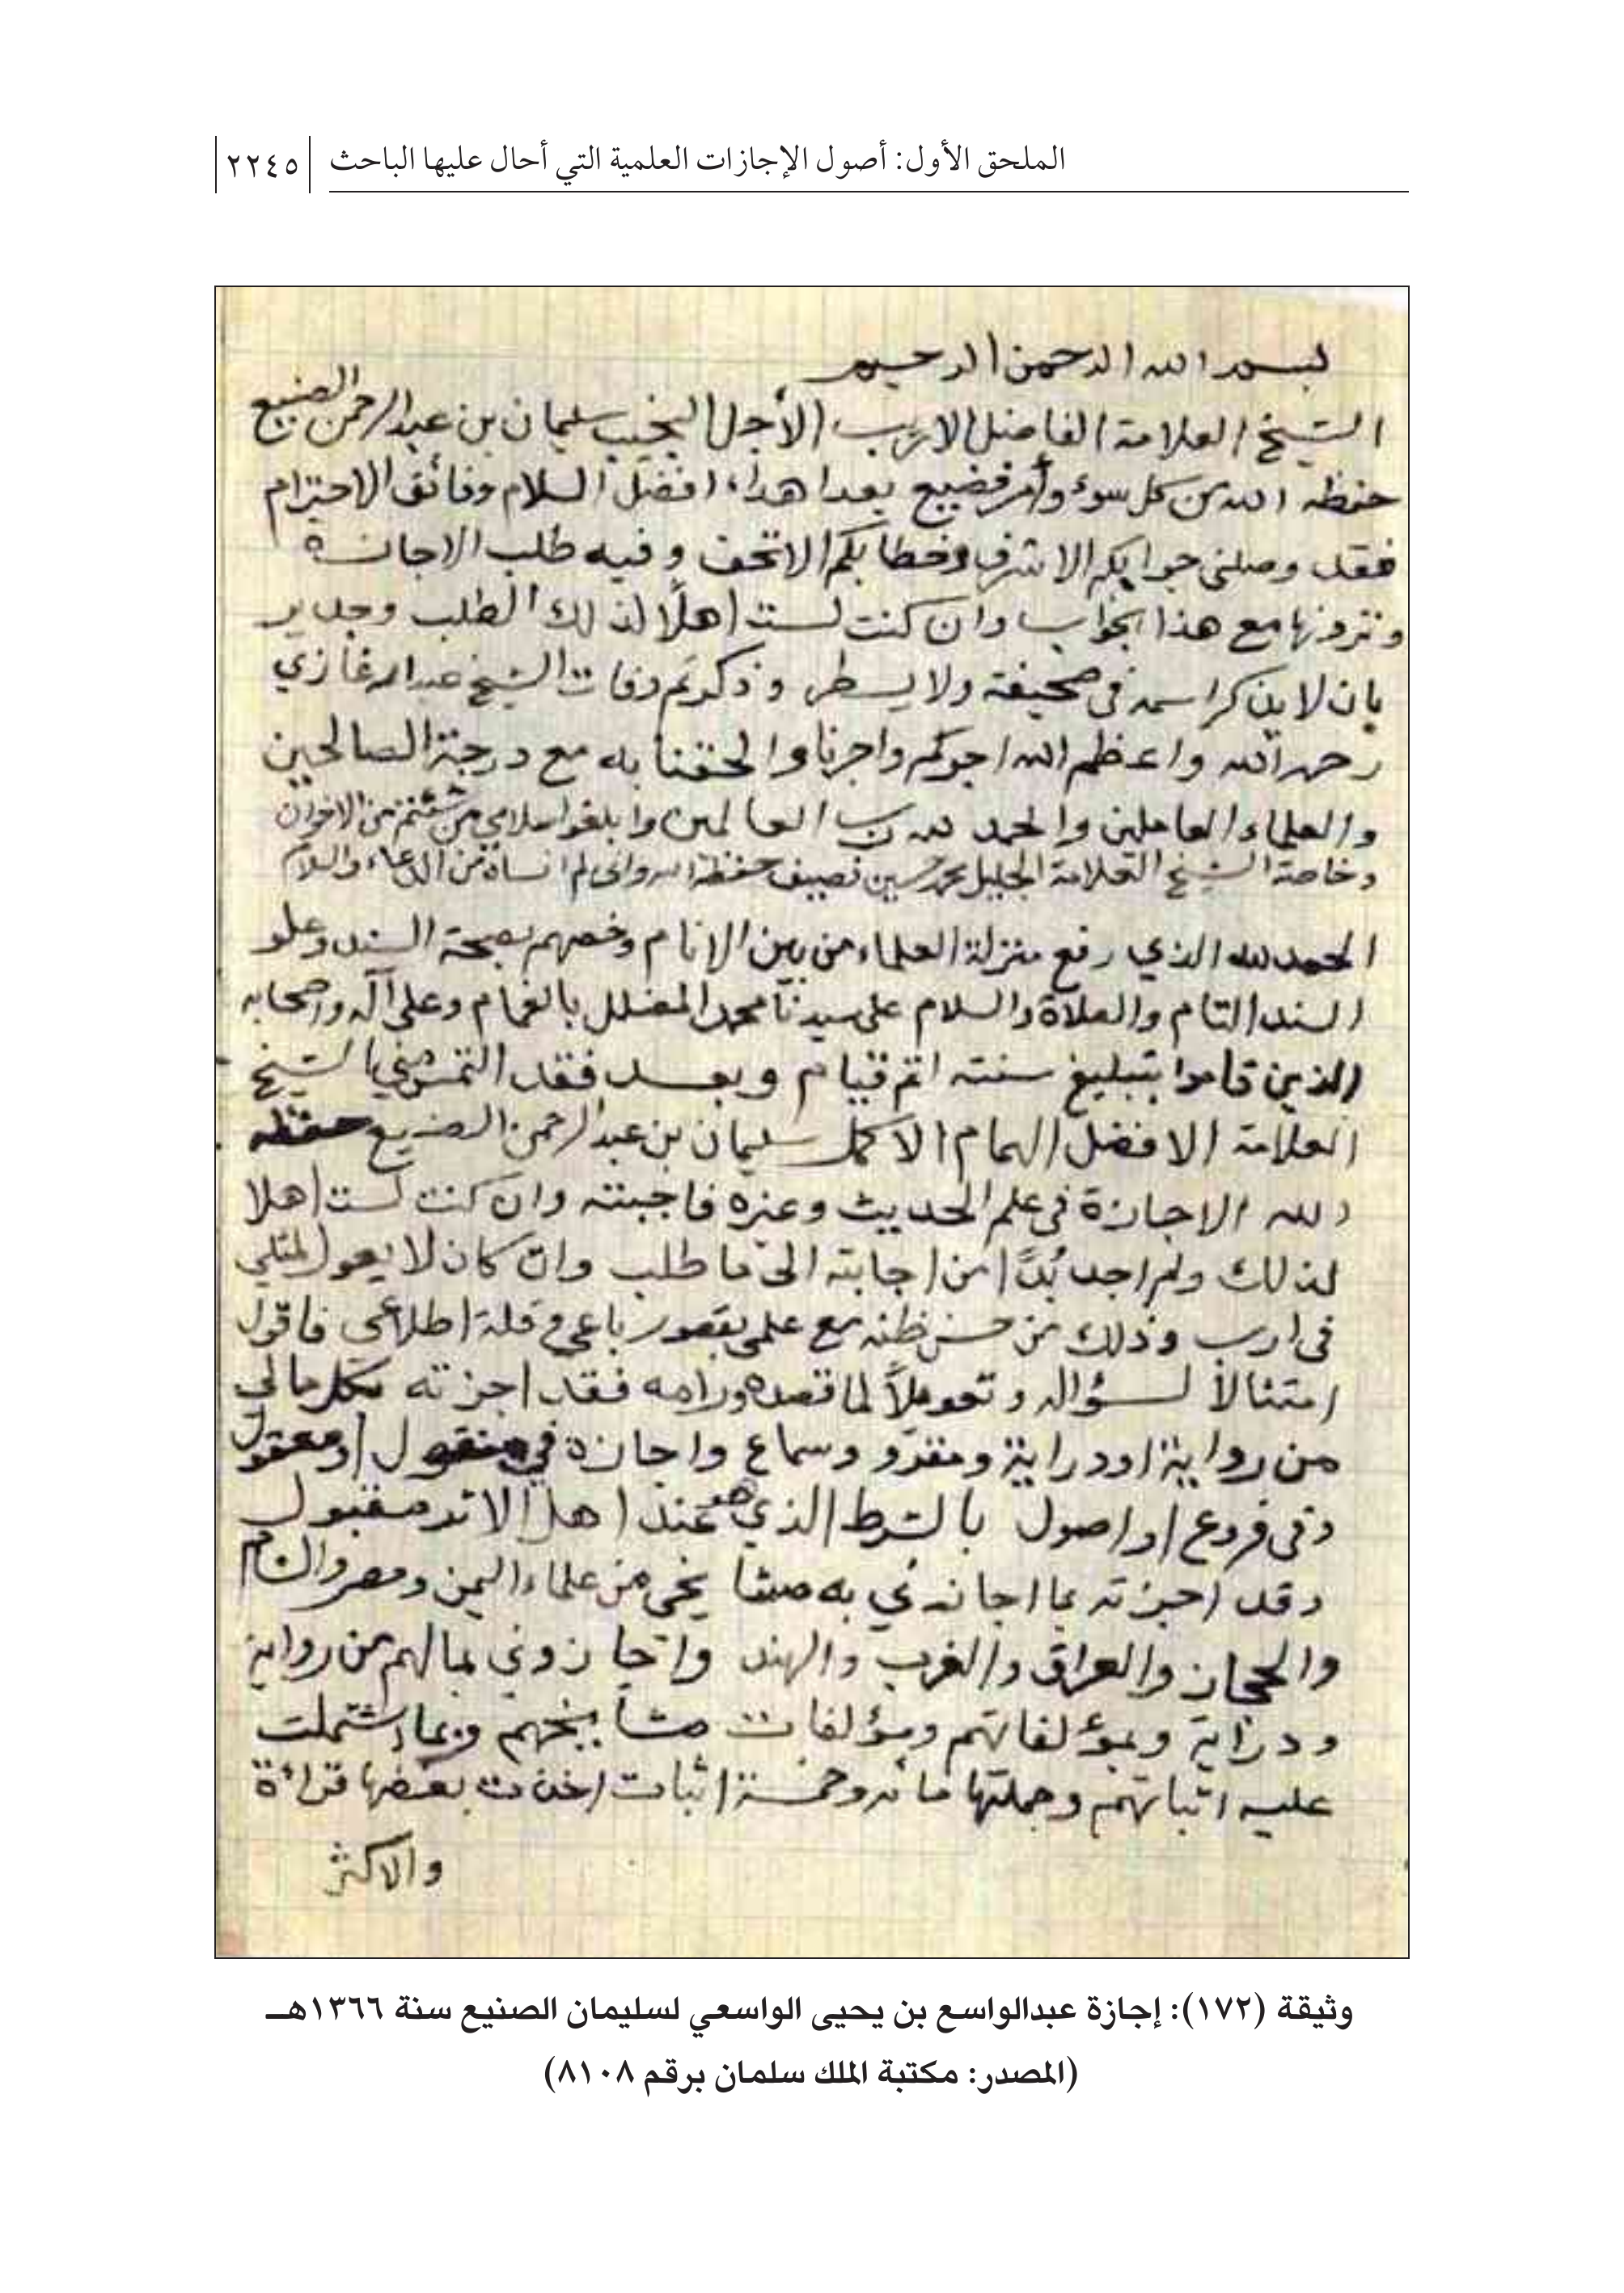 الملحق الأول: أصول الإجازات العلمية التي أحال عليها الباحث ٢٢٤٥
بسم الله الرحمن الرحيم
الشيخ العلامة الفاضل الاريب الأجل النجيب سليمان بن عبدالرحمن الصنيع
حفظه الله من كل سوء وأمر فضيع بعد اهداء افضل السلام وفائق الاحترام
فقد وصلني جوابكم الاشرف وخطابكم الاتحف وفيه طلب الاجازة
وترونها مع هذا الجواب وان كنت لست اهلًا لذلك الطلب وجدير
بان لا يذكر اسمه في صحيفة ولا يسطر وذكرتم وفات الشيخ عبدالله غازي
رحمه الله واعظم الله اجركم واجرنا والحقنا به مع درجة الصالحين
والعلماء العاملين والحمد لله رب العالمين وابلغوا سلامي من شئتم من الاخوان
وخاصة الشيخ العلامة الجليل محمد حسين نصيف حفظه الله واني لم انساه من الدعاء والسلام
الحمد لله الذي رفع منزلة العلماء من بين الانام وخصهم بصحة السند وعلو
السند التام والصلاة والسلام على سيدنا محمد المضلل بالغمام وعلى آله واصحابه
الذين قاموا بتبليغ سنته اتم قيام وبعد فقد التمس مني الشيخ
العلامة الافضل الهمام الأكمل سليمان بن عبدالرحمن الصنيع حفظه
الله الاجازة في علم الحديث وغيره فاجبته وان كنت لست اهلا
لذلك ولم اجد بُدًّا من اجابته الى ما طلب وان كان لا يعول لمثلي
في ارب وذلك من حسن ظنه مع علمي بقصور باعي وقلة اطلاعي فاقول
امتثالاً لسؤاله و لما قصده ورامه فقد اجزته بكل مالي
من رواية اودراية ومقرو وسماع واجازة في منقول اومعقول
وفي فروع او اصول بالشرط الذي هو عند اهل الاثر مقبول
وقد اجزته بما اجازني به مشايخي من علماء اليمن ومصر والشام
والحجاز والعراق والغرب والهند واجازوني بمالهم من رواية
ودراية وبمؤلفاتهم ومؤلفات مشايخهم وبما اشتملت
عليه اثباتهم وجملتها مائه وخمسة اثبات اخذت بعضها قراءة
والاكثر
وثيقة (١٧٢): إجازة عبدالواسع بن يحيى الواسعي لسليمان الصنيع سنة ١٣٦٦هـ
(المصدر: مكتبة الملك سلمان برقم ٨١٠٨)